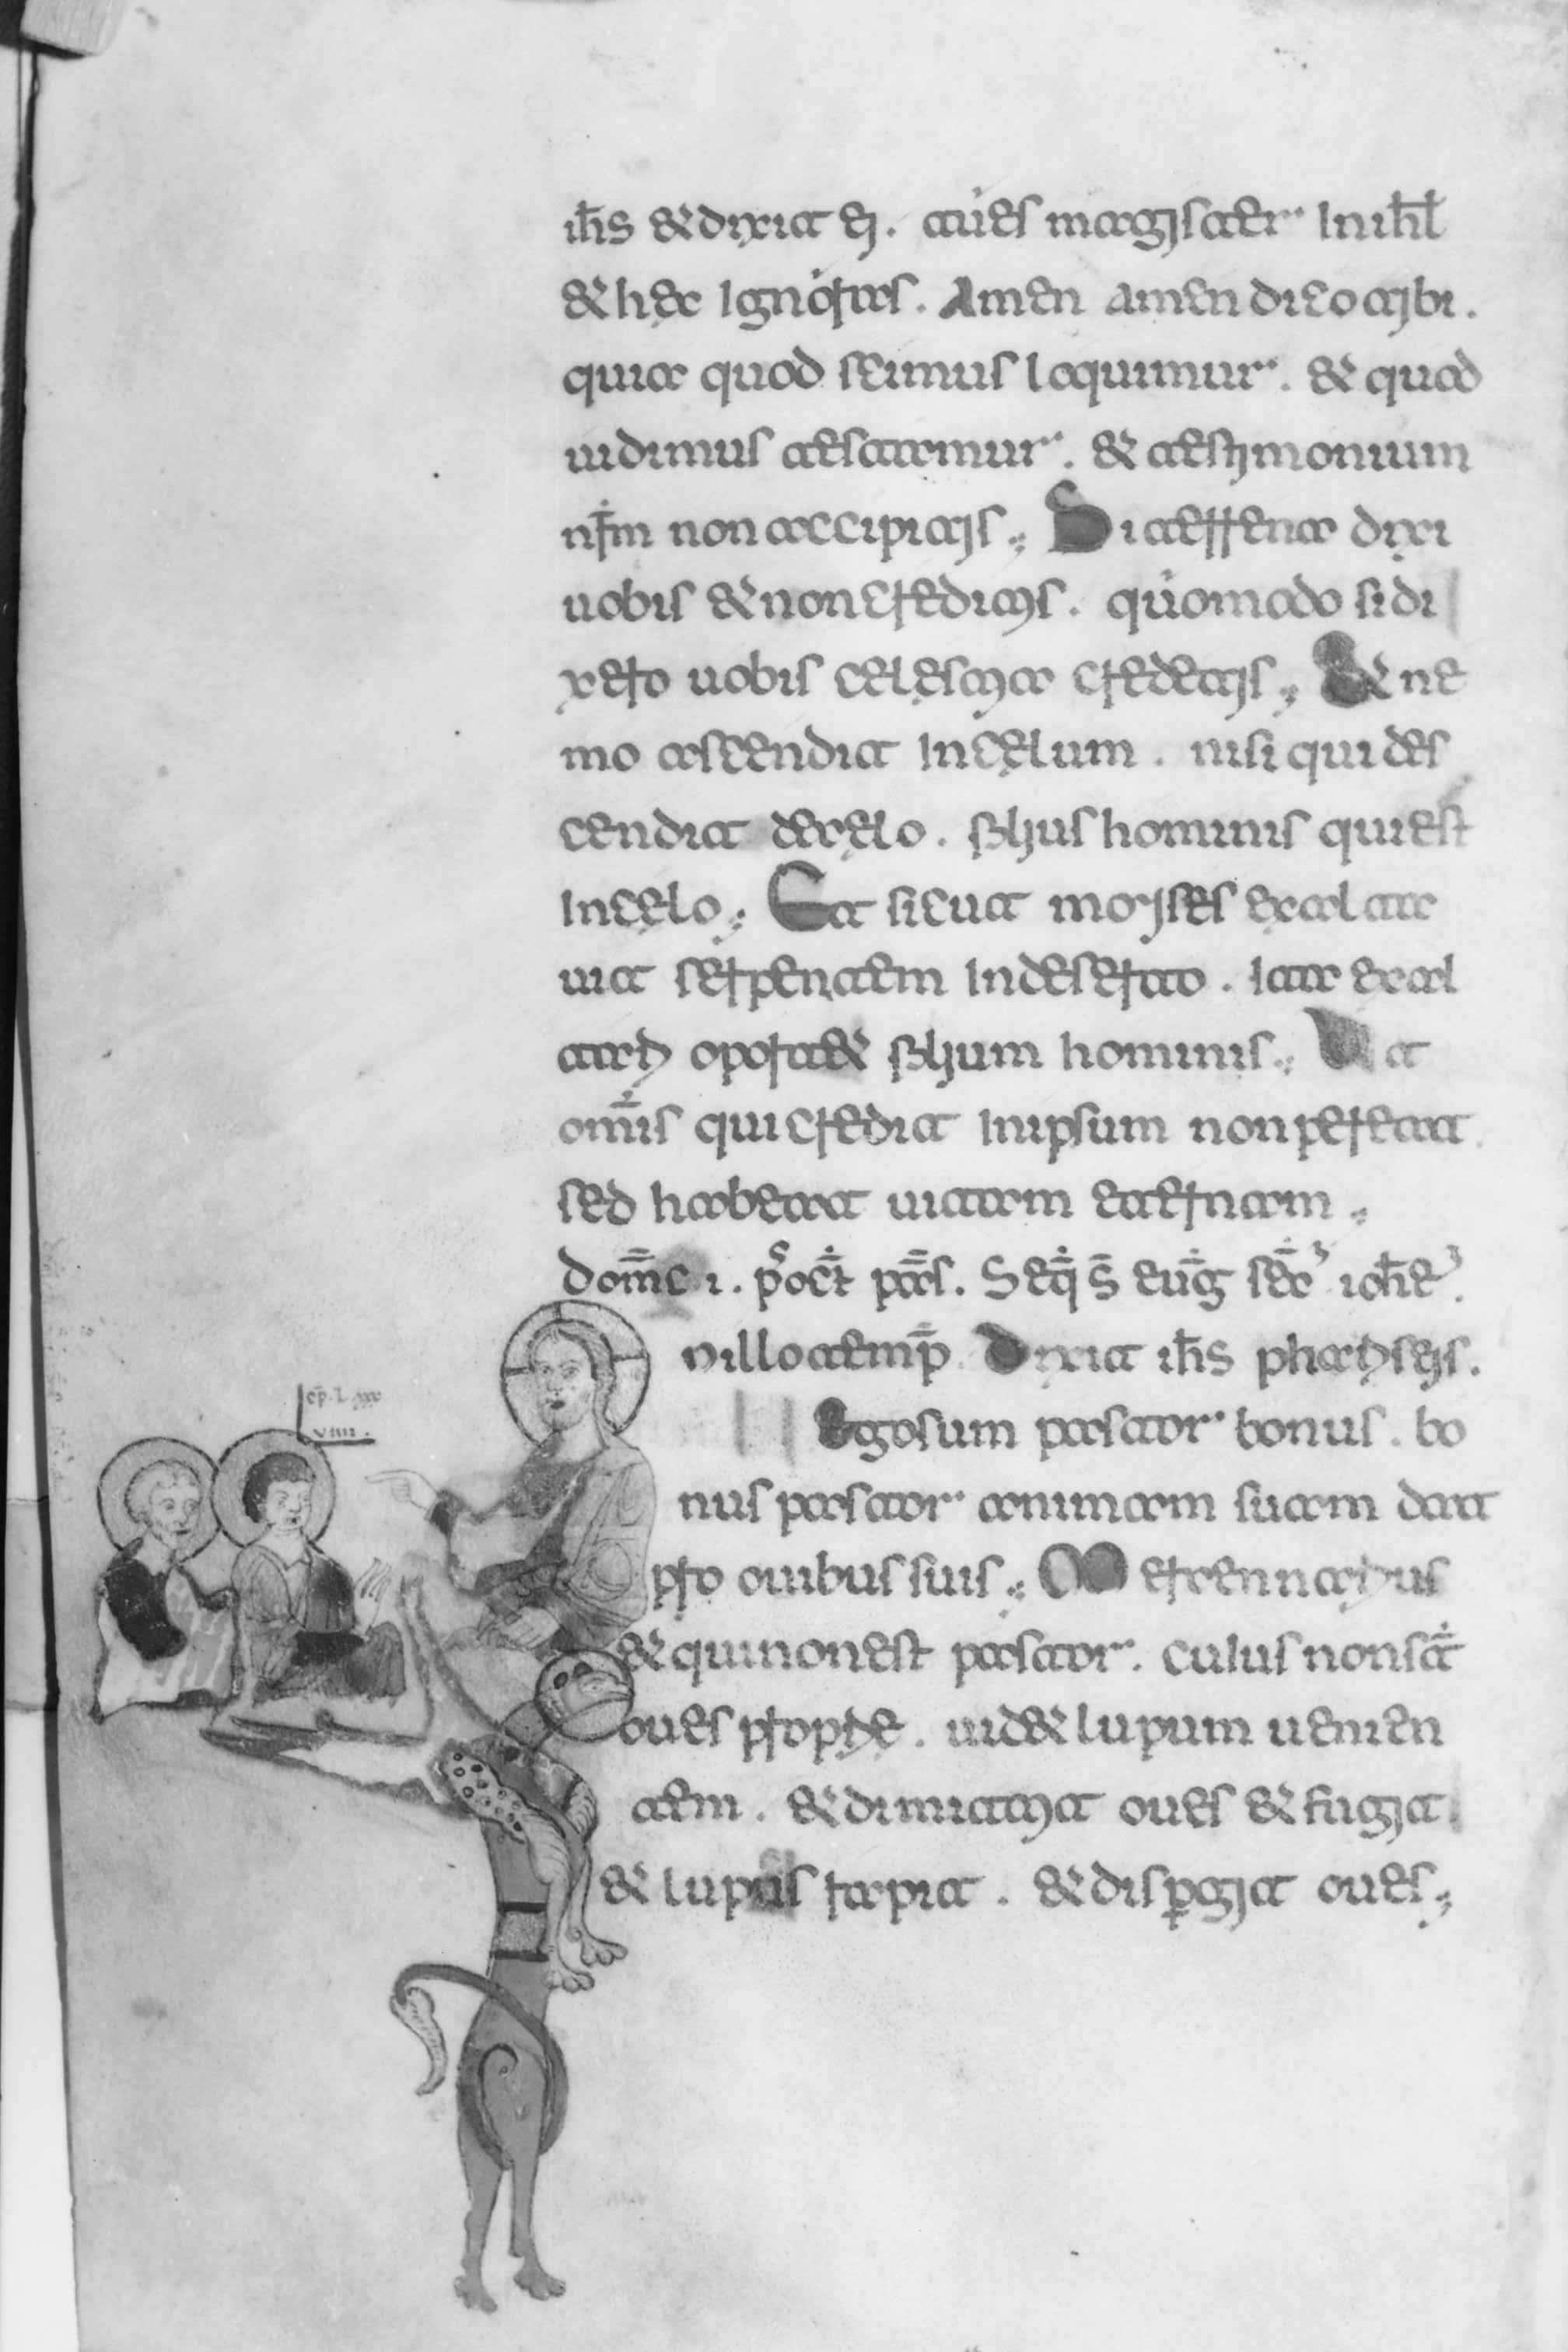 ih̄s & dixit ei. tu es magister in ihl̄
& hec ignoras. Amen amen dico tibi.
quia quod scimus loquimur. & quod
uidimus testamur. & testimonium
nr̄m non accipitis. Si terrena dixi
uobis & non creditis. quomodo si di
xero uobis celestia credetis. Et ne
mo ascendit in celum. nisi qui des
cendit de celo. filius hominis qui est
in celo. Et sicut moises exalta
uit serpentem in deserto. ita exal
tari oportet filium hominis. Ut
om̄is qui credit in ipsum non pereat
sed habeat uitam eternam.
Dom̄c i. p' oct̄ pas̄. Seq̄ s̄ euḡ sec̄ ioh̄e.
cp̄. Lxxx
viiii.
n illo temp̄ Dixit ih̄s phariseis.
Ego sum pastor bonus. bo
nus pastor animam suam dat
pro ouibus suis. Mercennarius
& qui non est pastor. cuius non st̄
oues proprie. uidet lupum uenien
tem. & dimittit oues & fugit
& lupus rapit. & disp̄git oues.